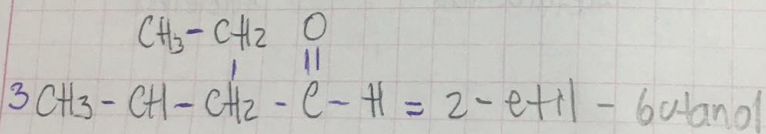 CH3 - CH2 O
3 CH3 - CH - CH2 - C - H = 2 - etil - butanol